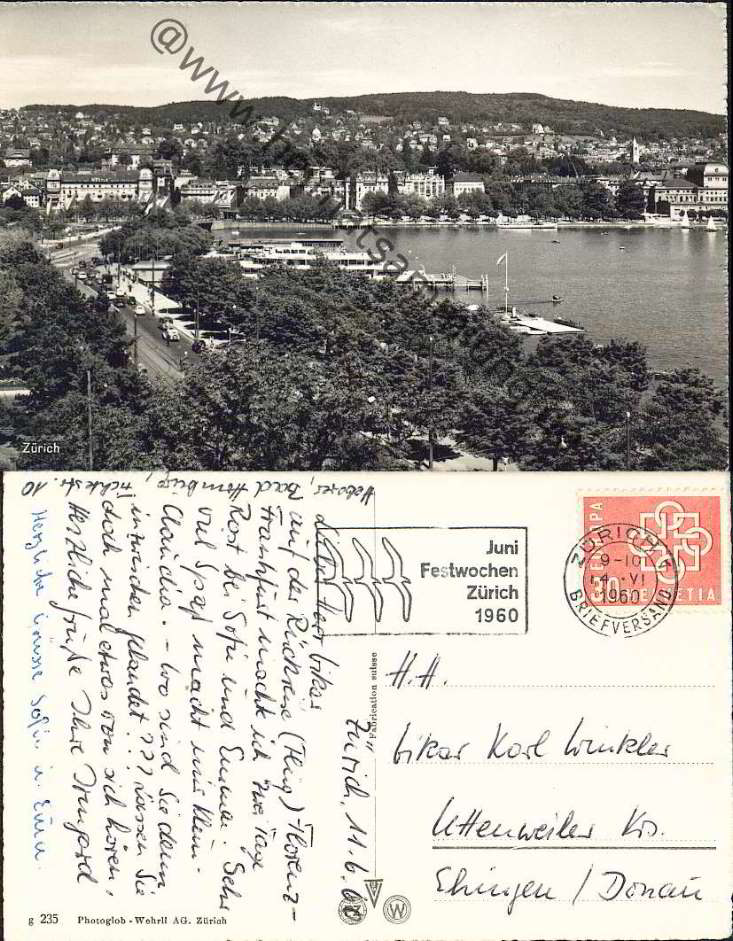 Zürich
Zürich, 11.6.60
Lieber Herr Vikar
auf der Rückreise (Flug) Florenz-
Frankfurt mache ich zwei Tage
Rast bei Sofie und Emma. Sehr
viel Spaß macht uns klein-
Claudia. - Wo sind Sie denn
inzwischen gelandet??? Lassen Sie
doch mal etwas von sich hören,
Herzliche Grüße Ihre Irmgard
Bad Homburg, Fichtestr. 10
Herzliche Grüsse Sofie u. Emma.
Juni
Festwochen
Zürich
1960
ZÜRICH 1
9-10
VI
1960
BRIEFVERSAND
EUROPA
HELVETIA
Fabrication suisse
H.H.
Vikar Karl Winkler
Uttenweiler Krs.
Ehingen / Donau
g 235 Photoglob - Wehrli AG. Zürich
W